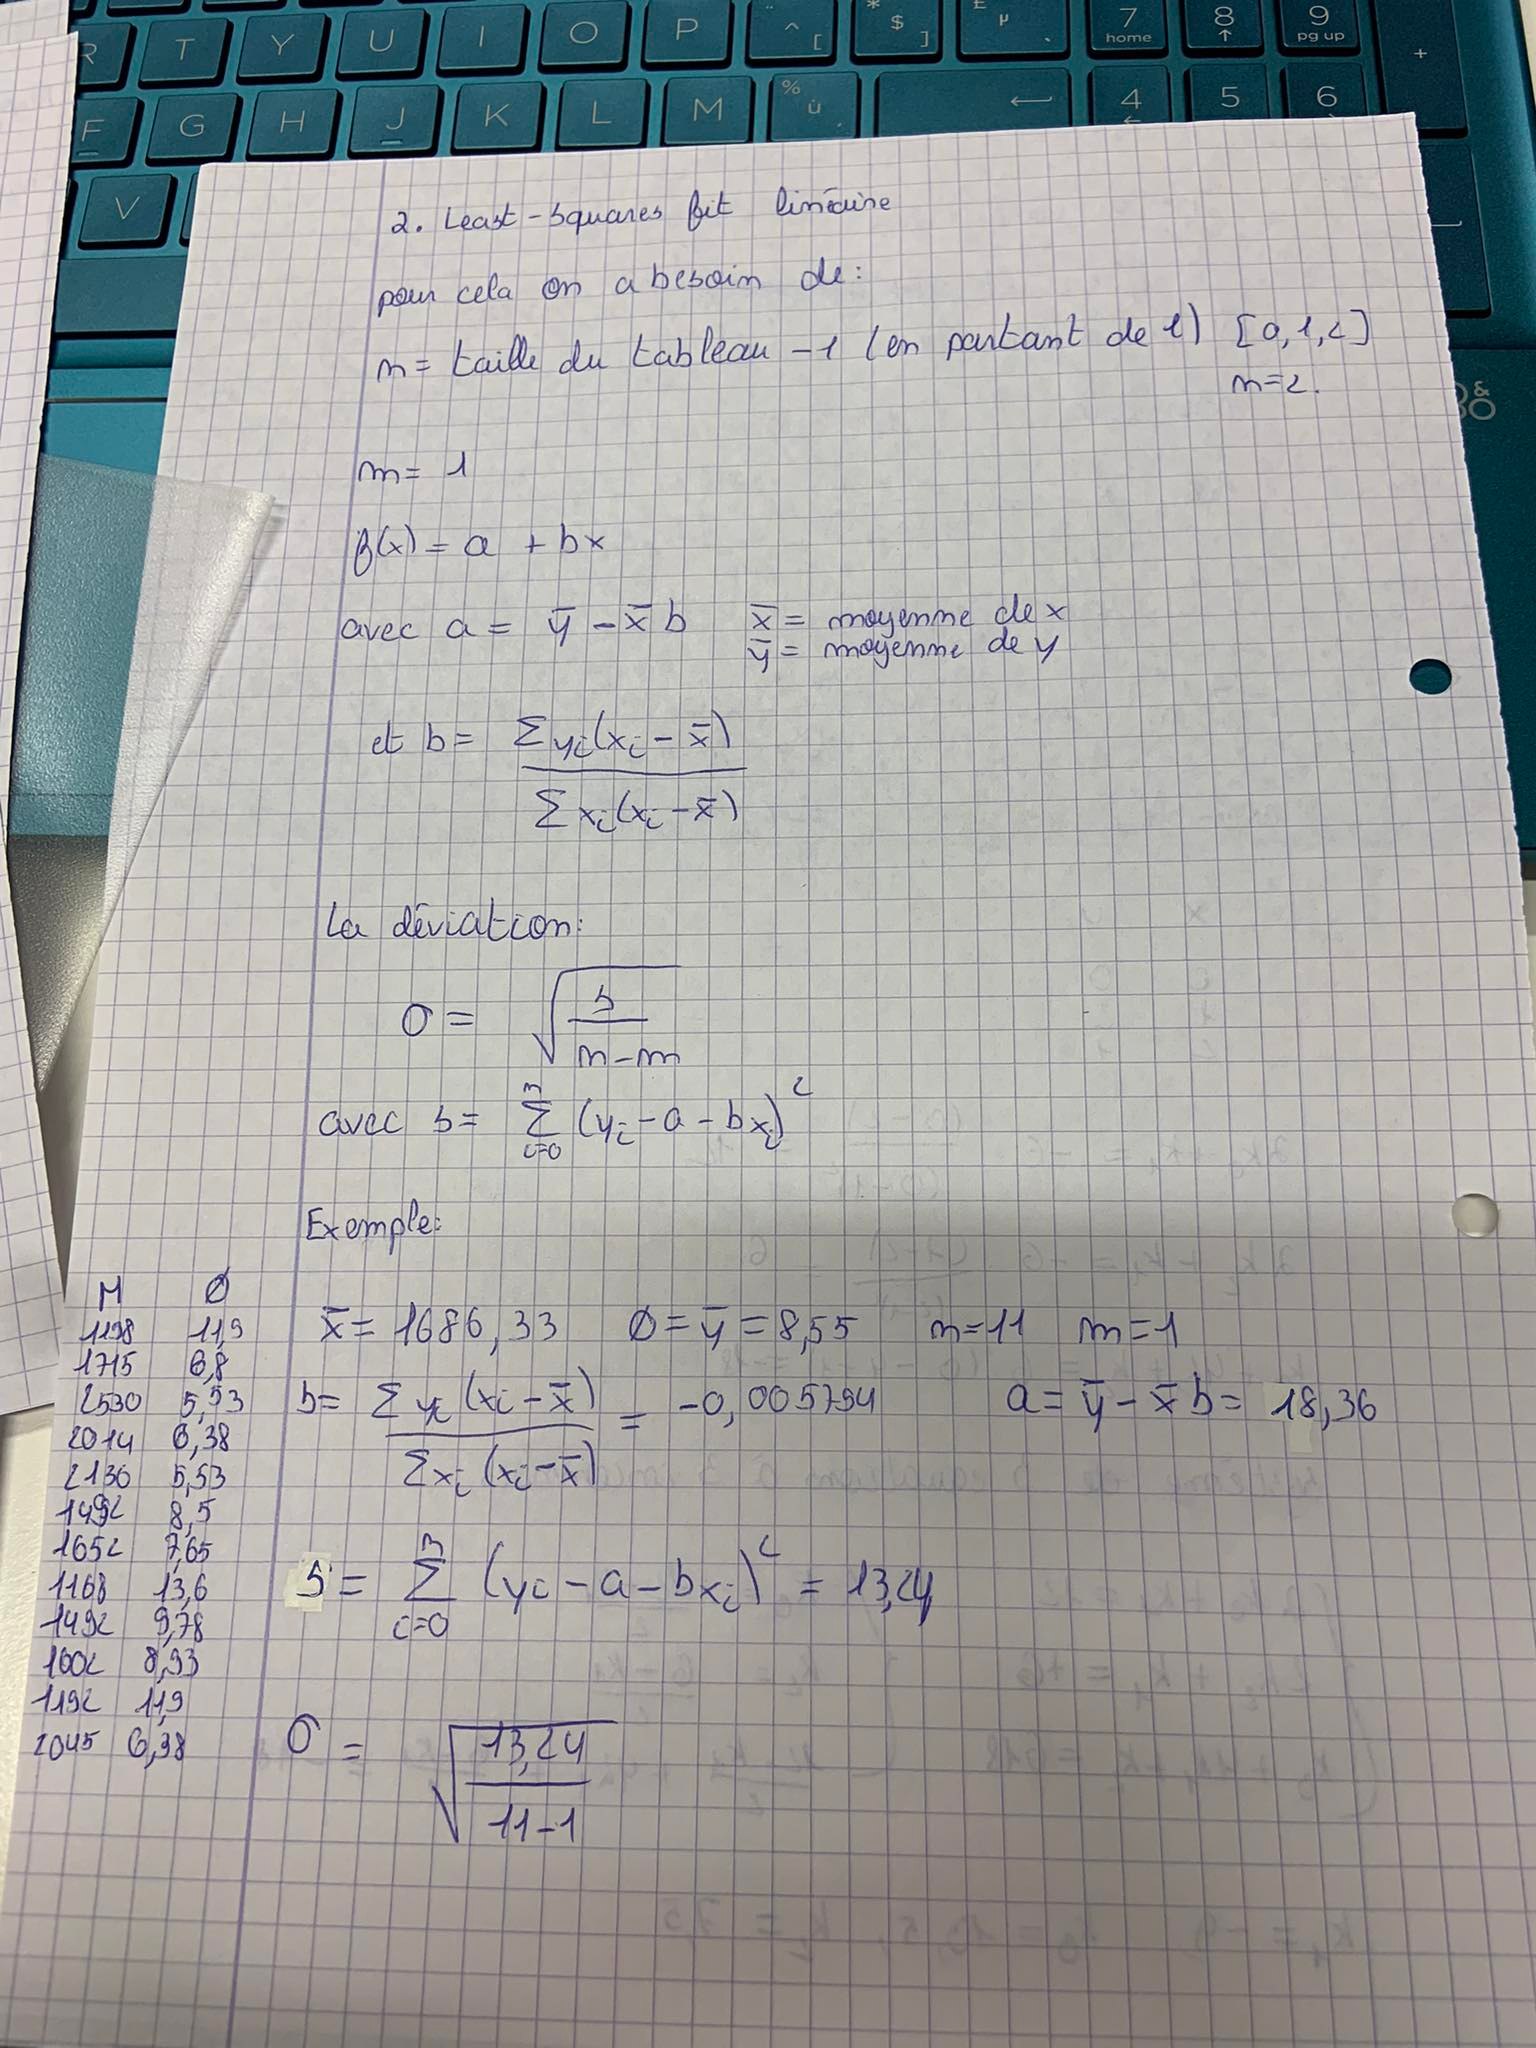 R T Y U I O P ¨ ^ [ * $ ] £ µ 7 home 8 ↑ 9 pg up +
F G H J K L M % ù ← 4 ← 5 6
V
2. Least-squares fit linéaire
pour cela on a besoin de:
n = taille du tableau -1 (en partant de 1) [0,1,2]
n=2.
m= 1
f(x) = a + bx
avec a = ȳ - x̄ b x̄ = moyenne de x
ȳ = moyenne de y
et b = Σ yi(xi - x̄)
Σ xi(xi - x̄)
La déviation:
σ = √ S
n-m
avec S = n Σ i=0 (yi - a - bxi)²
Exemple:
M Ø
1198 11,9
1715 6,8
2530 5,53
2014 6,38
2136 5,53
1492 8,5
1652 7,65
1168 13,6
1492 9,78
1602 8,93
1192 11,9
2045 6,38
x̄ = 1686,33 Ø = ȳ = 8,55 n=11 m=1
b = Σ yi(xi - x̄) = -0,005794 a = ȳ - x̄ b = 18,36
Σ xi(xi - x̄)
S = n Σ i=0 (yi - a - bxi)² = 13,24
σ = √ 13,24
11-1